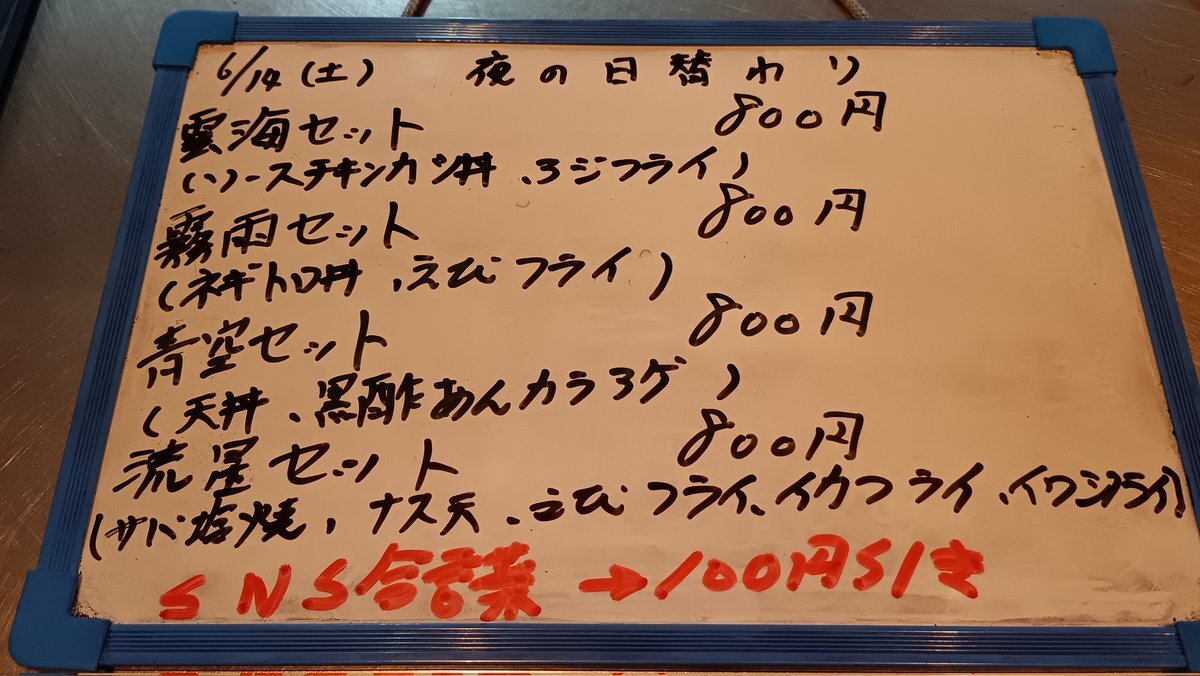 6/14(土) 夜の日替わり
雲海セット 800円
(ソースチキンカツ丼、アジフライ)
霧雨セット 800円
(ネギトロ丼、えびフライ)
青空セット 800円
(天丼、黒酢あんカラアゲ)
流星セット 800円
(サバ塩焼、ナス天、えびフライ、イカフライ、イワシフライ)
SNS合言葉→100円引き